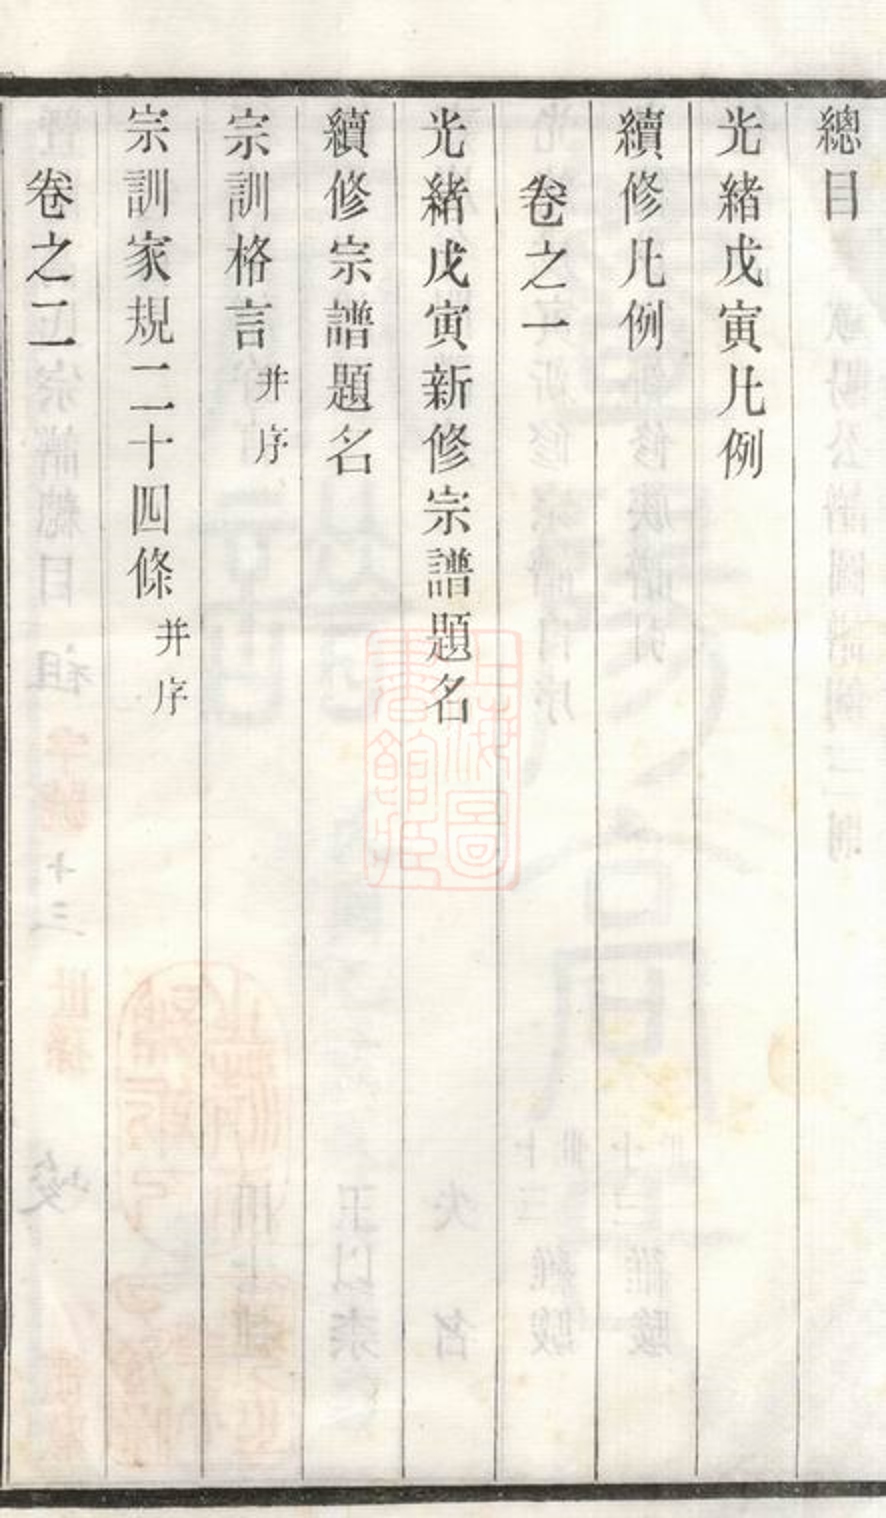 總目
光緒戊寅凡例
續修凡例
卷之一
光緒戊寅新修宗譜題名
續修宗譜題名
宗訓格言 并序
宗訓家規二十四條 并序
卷之二
上海圖書館藏